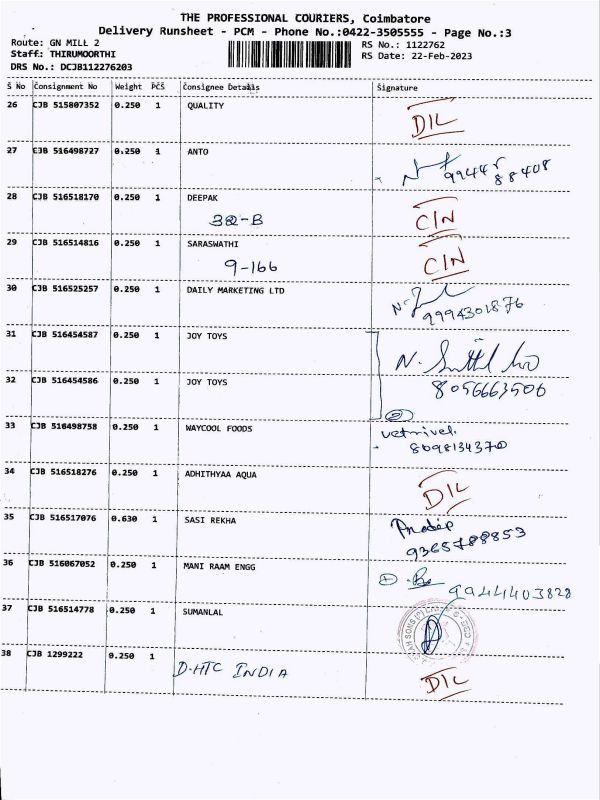 THE PROFESSIONAL COURIERS, Coimbatore
Delivery Runsheet - PCM - Phone No.:0422-3505555 - Page No.:3
Route: GN MILL 2
Staff: THIRUMOORTHI
DRS No.: DCJB112276203
RS No.: 1122762
RS Date: 22-Feb-2023
S No Consignment No Weight PCS Consignee Details Signature
26 CJB 515807352 0.250 1 QUALITY DIL
27 CJB 516498727 0.250 1 ANTO
28 CJB 516518170 0.250 1 DEEPAK CIN
32-B
29 CJB 516514816 0.250 1 SARASWATHI CIN
9-166
30 CJB 516525257 0.250 1 DAILY MARKETING LTD
9994301876
31 CJB 516454587 0.250 1 JOY TOYS
32 CJB 516454586 0.250 1 JOY TOYS
8056663506
33 CJB 516498758 0.250 1 WAYCOOL FOODS vetrivel.
8098134370
34 CJB 516518276 0.250 1 ADHITHYAA AQUA DIL
35 CJB 516517076 0.630 1 SASI REKHA Pradeep
9365788853
36 CJB 516067052 0.250 1 MANI RAAM ENGG
9944403828
37 CJB 516514778 0.250 1 SUMANLAL
38 CJB 1299222 0.250 1 D-HTC INDIA DIL